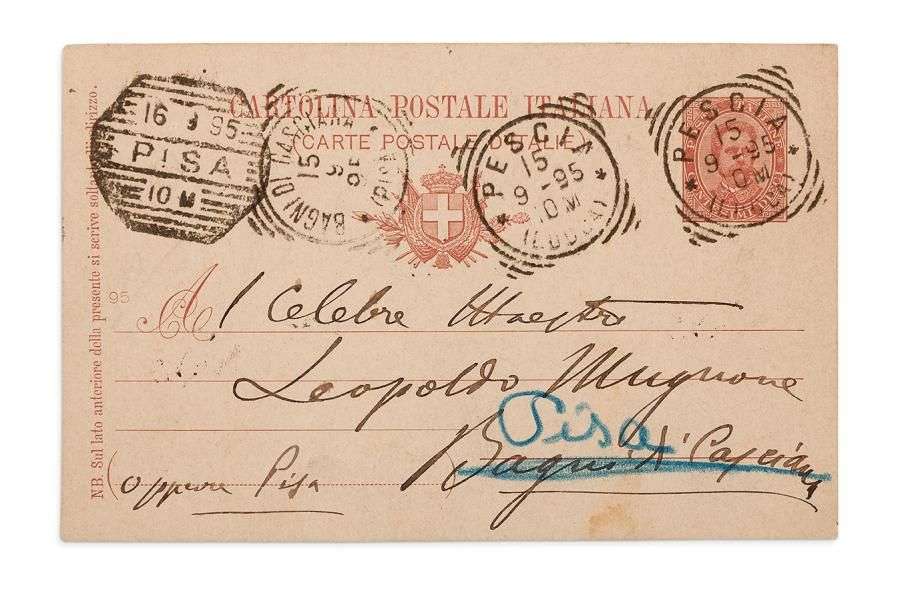 CARTOLINA POSTALE ITALIANA
(CARTE POSTALE D'ITALIE)
16 9 95
PISA
10 M
BAGNI DI CASCIANA
15
9
95
(PISA)
PESCIA
15
9 - 95
10 M
(LUCCA)
PESCIA
15
9 - 95
10 M
(LUCCA)
95
Al Celebre Maestro
Leopoldo Mugnone
Pisa
Bagni di Casciana
(oppure Pisa
NB. Sul lato anteriore della presente si scrive soltanto l'indirizzo.